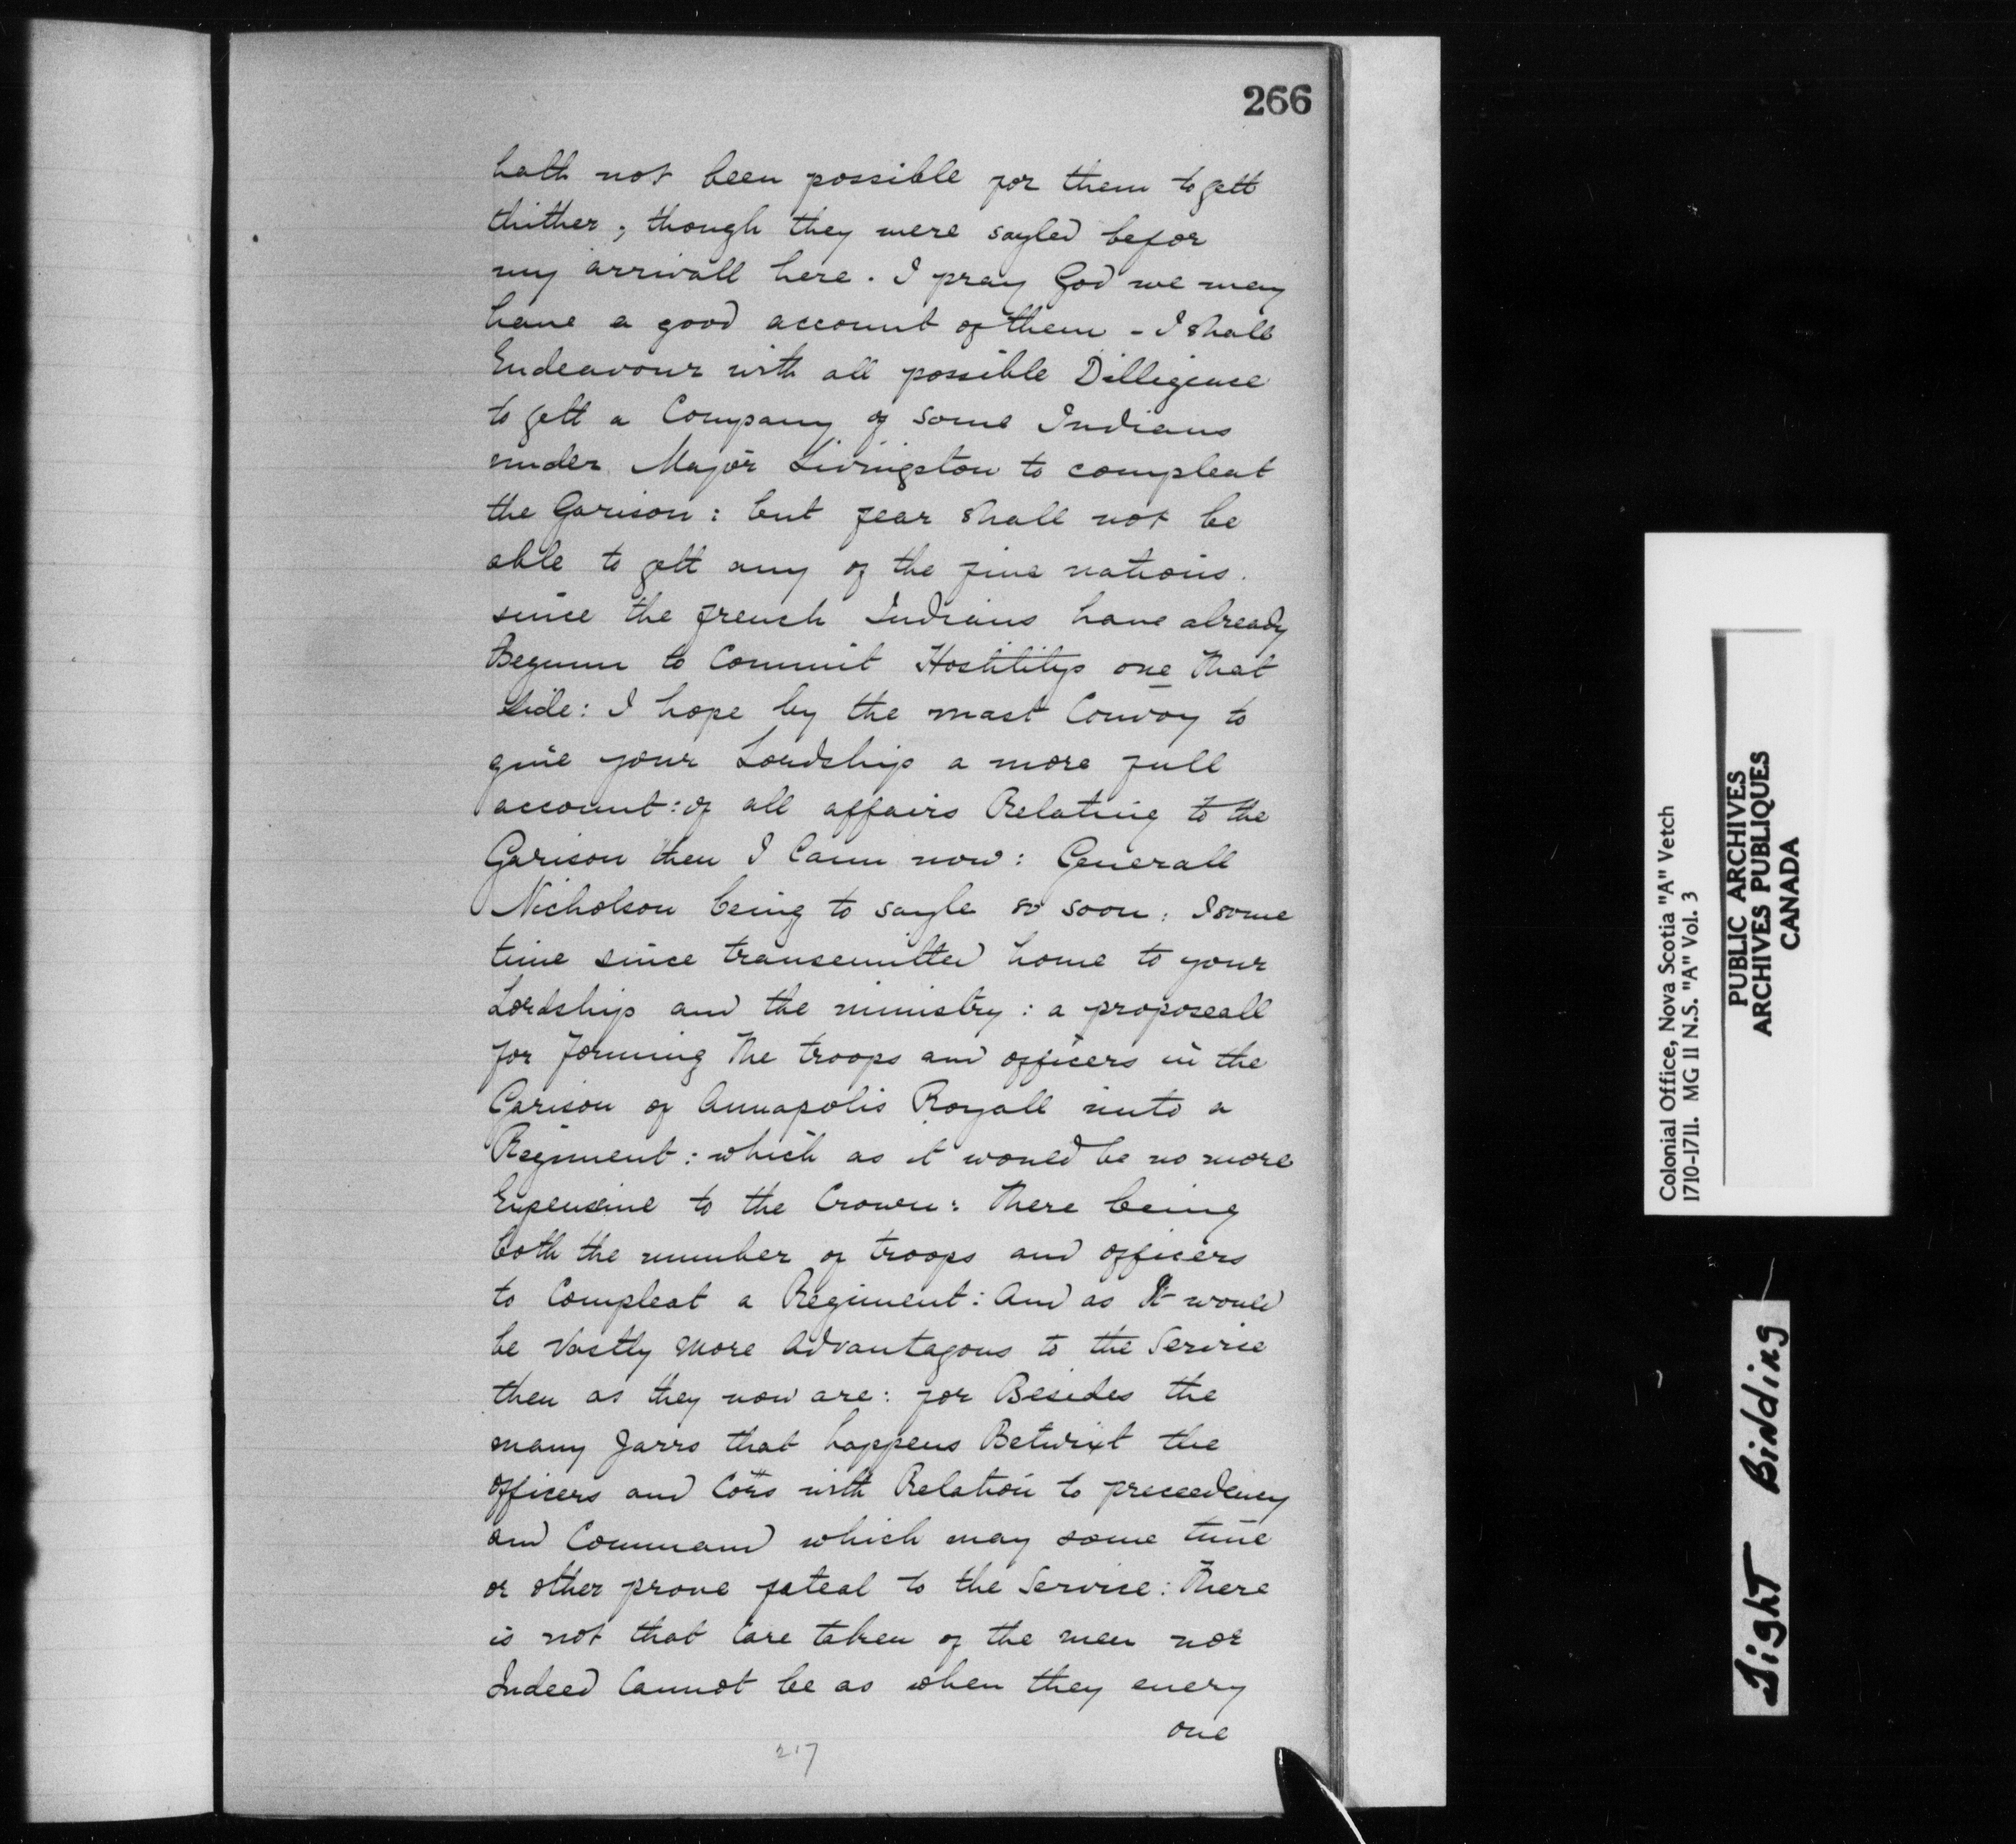 266
hath not been possible for them to gett
thither, though they were sayled befor
my arrivall here. I pray God we may
have a good account of them - I shall
Endeavour with all possible Dilligence
to gett a Company of some Indians
under Major Livingston to compleat
the Garison: but fear shall not be
able to gett any of the five nations.
since the french Indians have already
Begunn to Commit Hostilitys one That
side: I hope by the mast Convoy to
give your Lordship a more full
account: of all affairs Relating to the
Garison then I Cann now: Generall
Nicholson being to sayle so soon: I some
time since transemitted home to your
Lordship and the ministry: a proposeall
for forming The troops and officers in the
Garison of Annapolis Royall into a
Regiment: which as it would be no more
Expensive to the Crown: There being
both the number of troops and officers
to Compleat a Regiment: And as It would
be Vastly more Advantagous to the Service
then as they now are: for Besides the
many Jarrs that happens Betwixt the
officers and Corrs with Relation to preceedency
and Command which may some time
or other prove fateal to the Service: There
is not that Care taken of the men nor
Indeed Cannot be as when they every
one
217
Colonial Office, Nova Scotia "A" Vetch
1710-1711. MG 11 N.S. "A" Vol. 3
PUBLIC ARCHIVES
ARCHIVES PUBLIQUES
CANADA
Tight Binding